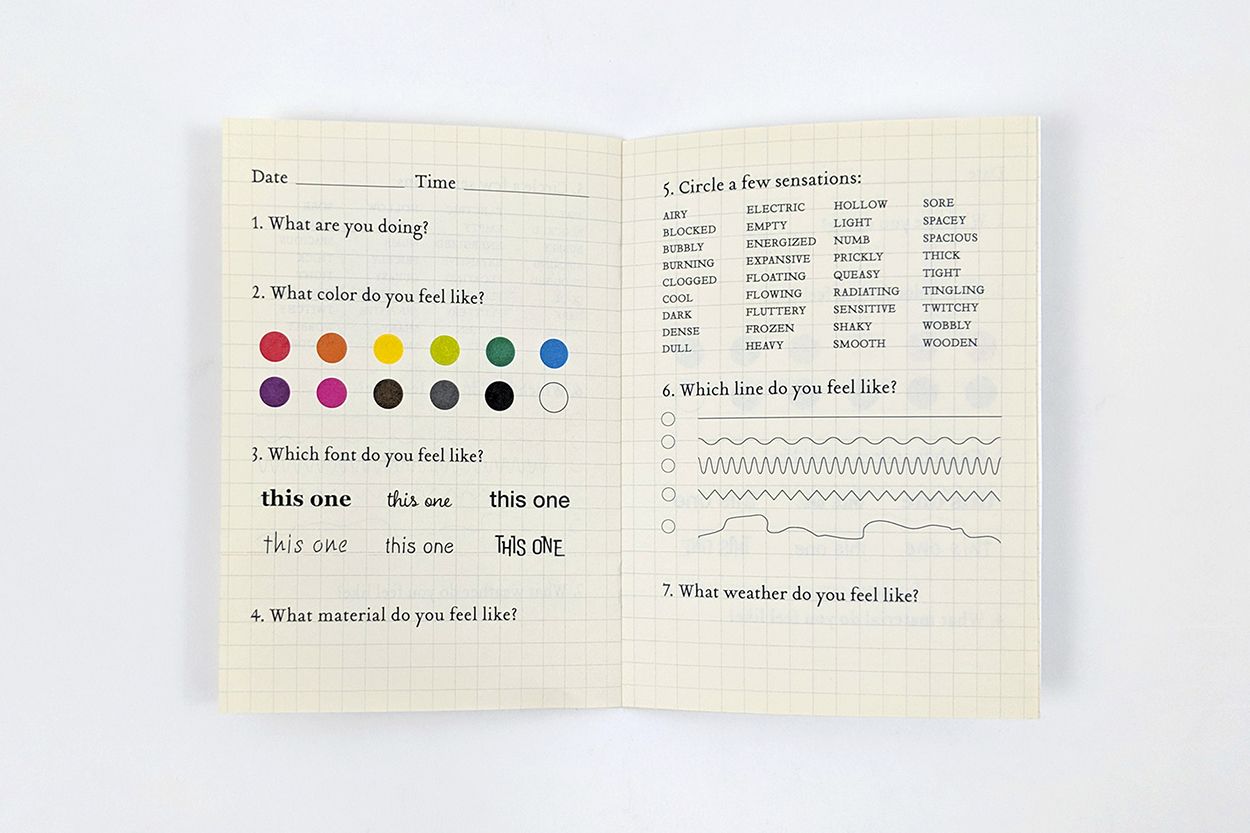 Date Time
1. What are you doing?
2. What color do you feel like?
3. Which font do you feel like?
this one this one this one
this one this one THIS ONE
4. What material do you feel like?
5. Circle a few sensations:
AIRY ELECTRIC HOLLOW SORE
BLOCKED EMPTY LIGHT SPACEY
BUBBLY ENERGIZED NUMB SPACIOUS
BURNING EXPANSIVE PRICKLY THICK
CLOGGED FLOATING QUEASY TIGHT
COOL FLOWING RADIATING TINGLING
DARK FLUTTERY SENSITIVE TWITCHY
DENSE FROZEN SHAKY WOBBLY
DULL HEAVY SMOOTH WOODEN
6. Which line do you feel like?
7. What weather do you feel like?